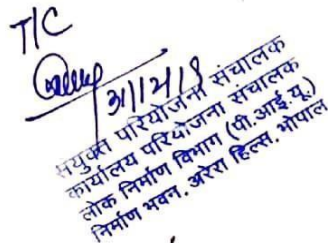 T/C
31/12/18
संयुक्त परियोजना संचालक
कार्यालय परियोजना संचालक
लोक निर्माण विभाग (पी.आई.यू.)
निर्माण भवन. अरेरा हिल्स. भोपाल